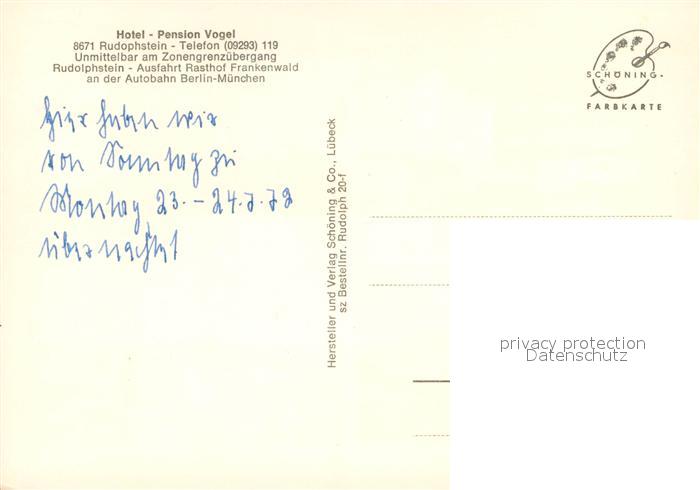 Hotel - Pension Vogel
8671 Rudophstein - Telefon (09293) 119
Unmittelbar am Zonengrenzübergang
Rudolphstein - Ausfahrt Rasthof Frankenwald
an der Autobahn Berlin-München
Hier haben wir
von Sonntag zu
Montag 23. - 24.7.72
übernachtet
Hersteller und Verlag Schöning & Co., Lübeck
sz Bestellnr. Rudolph 20-f
SCHÖNING
FARBKARTE
privacy protection
Datenschutz